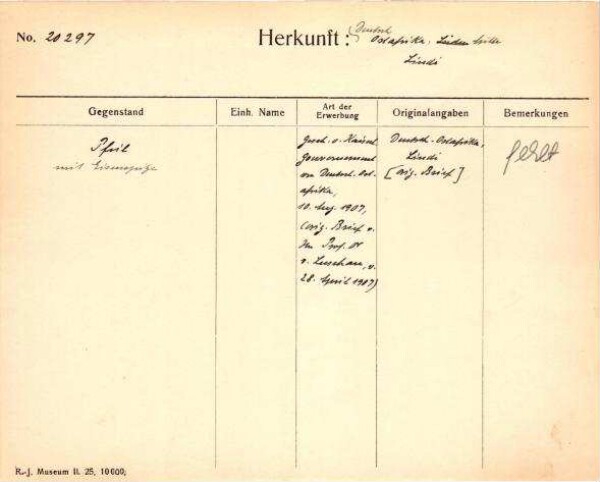 No. 20 297
Herkunft: Deutsch
Ostafrika,
Lindi
Gegenstand
Einh. Name
Art der
Erwerbung
Originalangaben
Bemerkungen
Pfeil
mit Eisenspitze
Gesch. v. Kaiserl.
Gouvernement
von Deutsch-Ost-
afrika,
10. Aug. 1907,
(orig. Brief v.
Prof. Dr
v. Luschan, v.
28. April 1907)
Deutsch-Ostafrika,
Lindi
[orig. Brief]
fehlt
R.-J. Museum II. 25, 10 000;